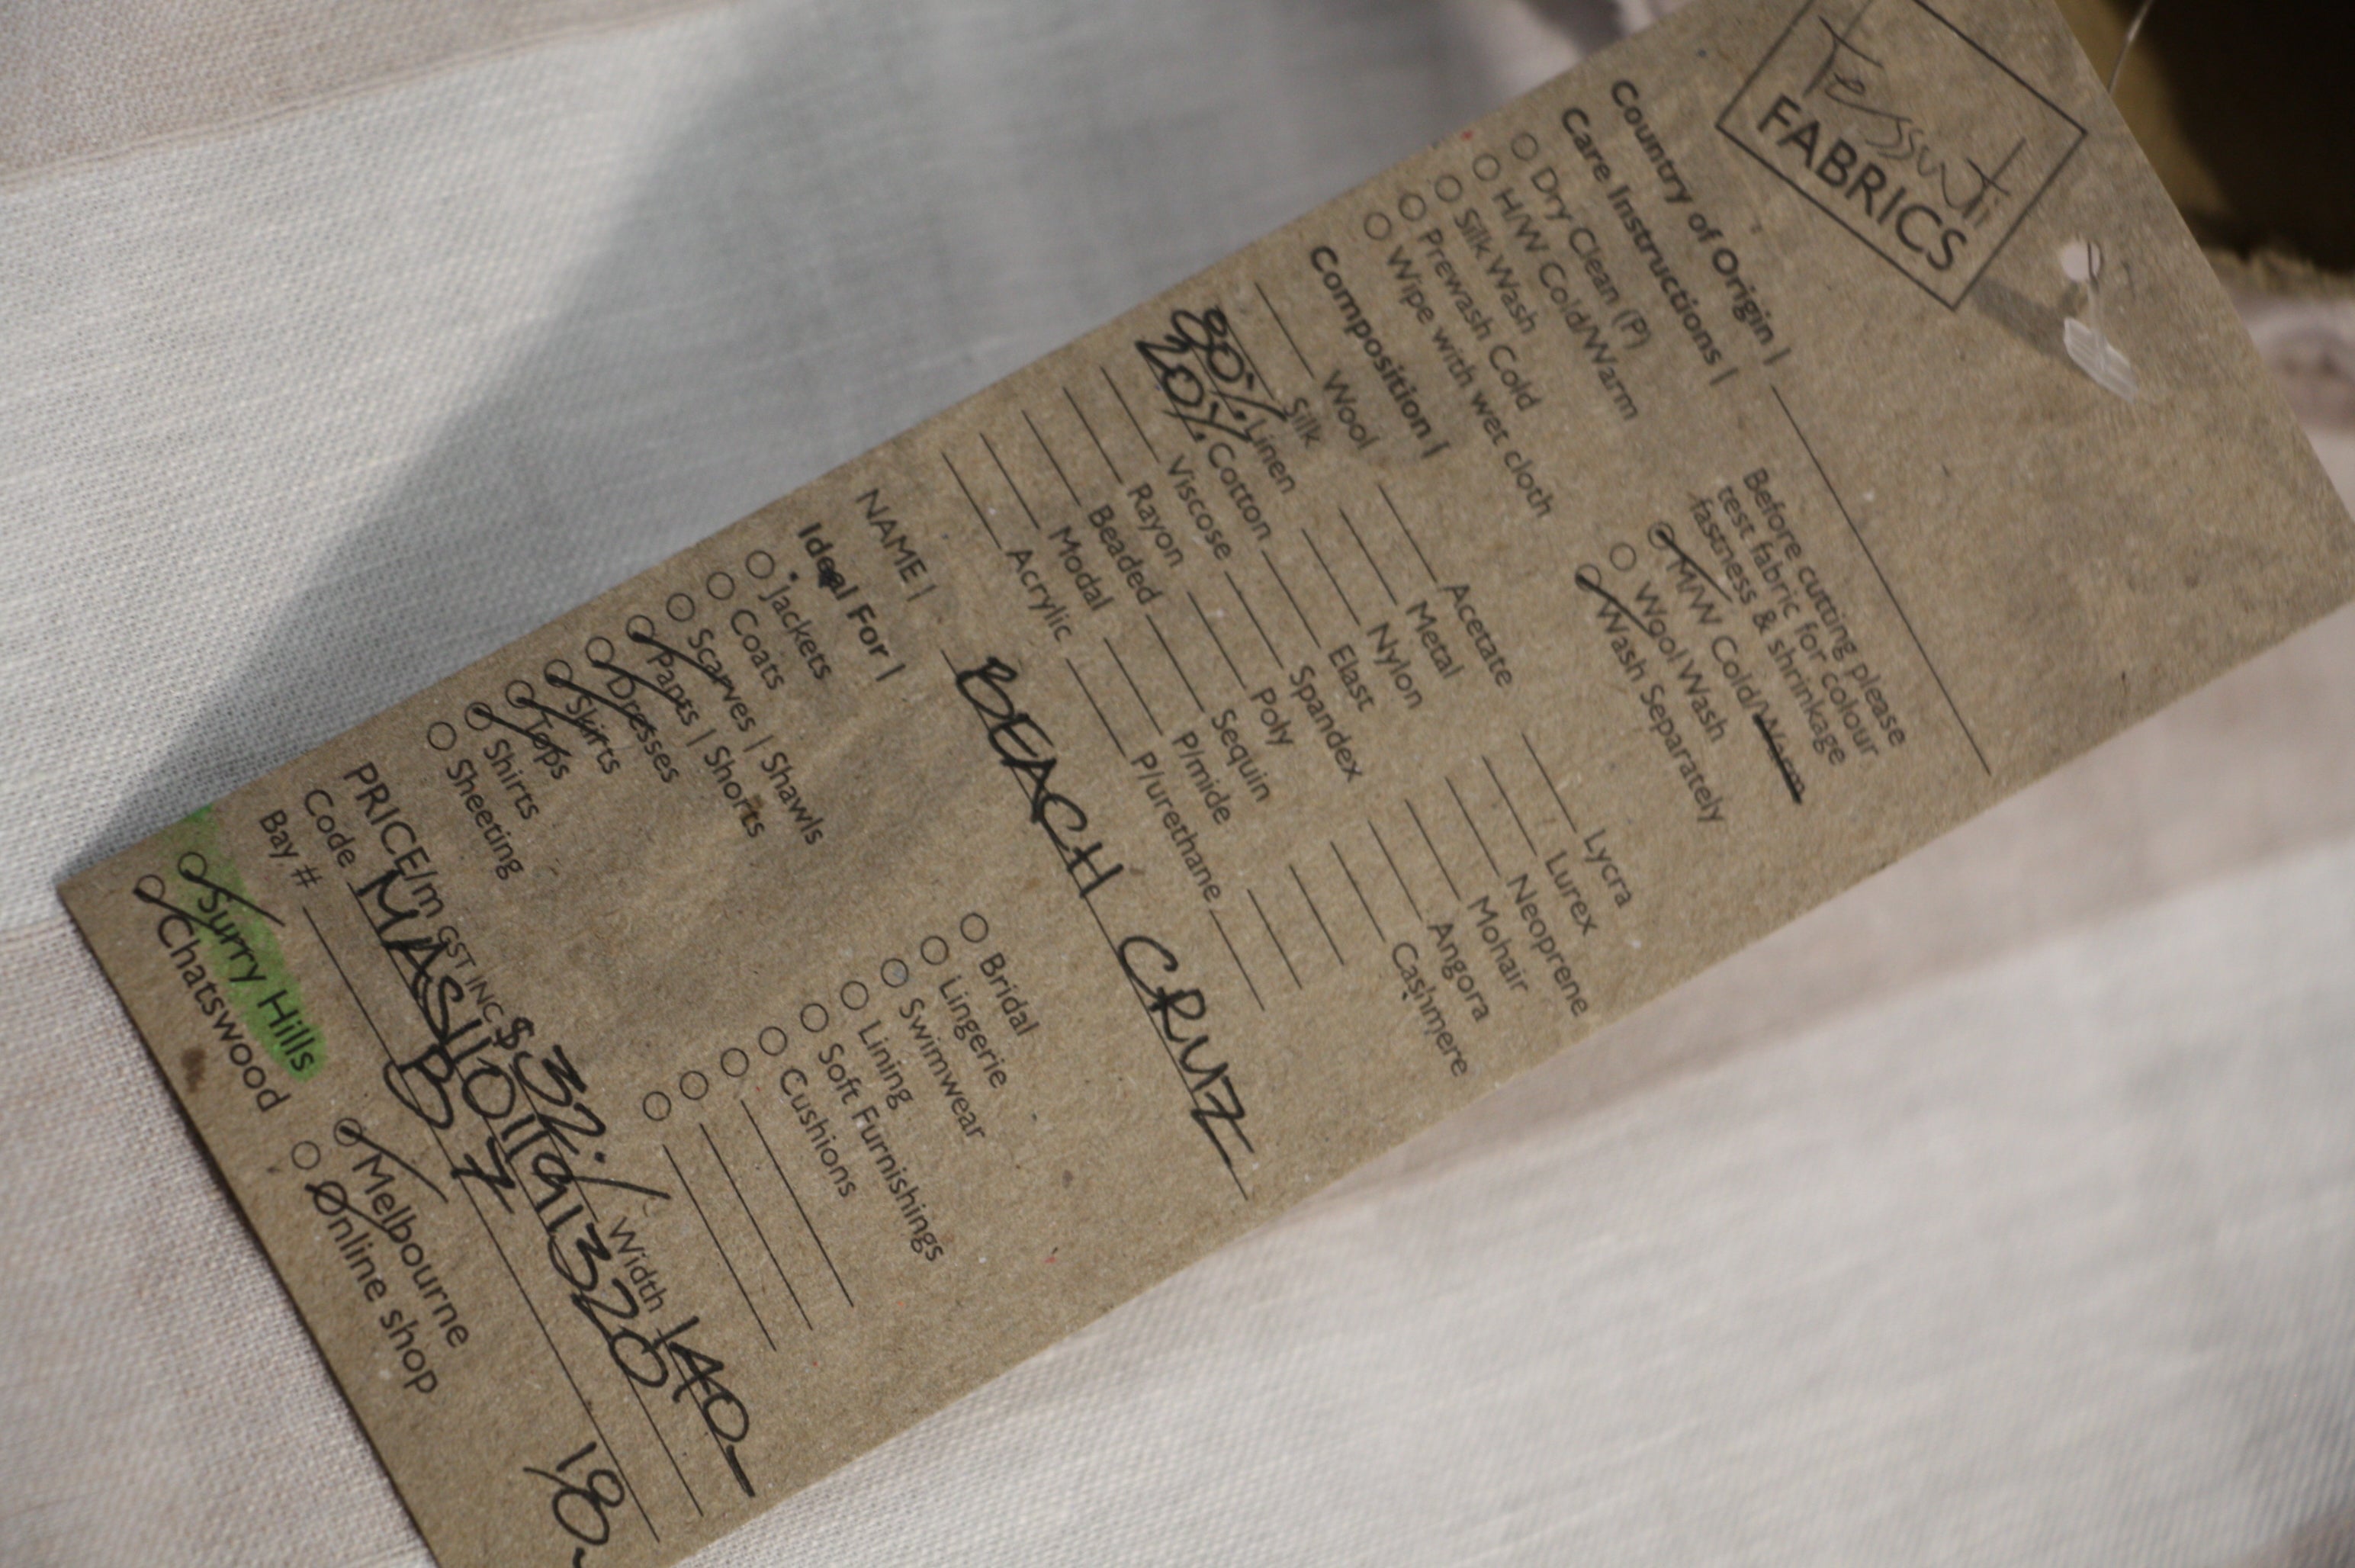 Tessuti
FABRICS
Country of Origin |
Care Instructions |
Before cutting please
test fabric for colour
fastness & shrinkage
Dry Clean (P)
H/W Cold/Warm
Silk Wash
Prewash Cold
Wipe with wet cloth
M/W Cold/Warm
Wool Wash
Wash Separately
Composition |
Wool
Silk
80% Linen
20% Cotton
Viscose
Rayon
Beaded
Modal
Acrylic
Acetate
Metal
Nylon
Elast
Spandex
Poly
Sequin
P/mide
P/urethane
Lycra
Lurex
Neoprene
Mohair
Angora
Cashmere
NAME | BEACH CRUZ
Ideal For |
Jackets
Coats
Scarves | Shawls
Pants | Shorts
Dresses
Skirts
Tops
Shirts
Sheeting
Bridal
Lingerie
Swimwear
Lining
Soft Furnishings
Cushions
PRICE/m GST INC $32. Width 140
Code
Bay # B 7
Surry Hills
Chatswood
Melbourne
Online shop